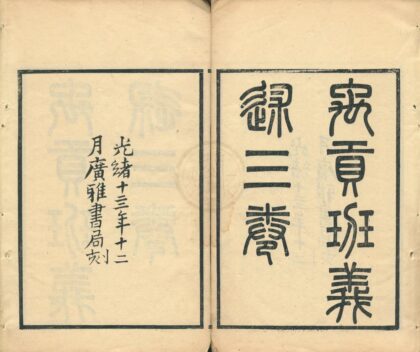 禹貢班義
述三卷
光緒十三年十二
月廣雅書局刻